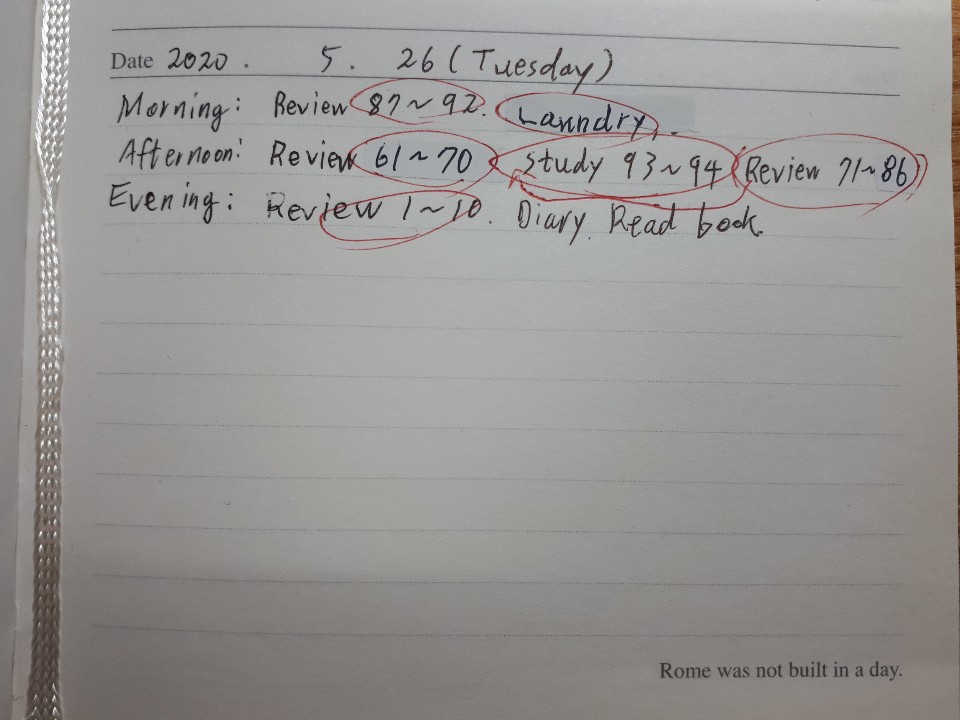 Date 2020. 5. 26 (Tuesday)
Morning: Review 87~92. Laundry.
Afternoon: Review 61~70 Study 93~94 Review 71~86
Evening: Review 1~10. Diary. Read book.
Rome was not built in a day.